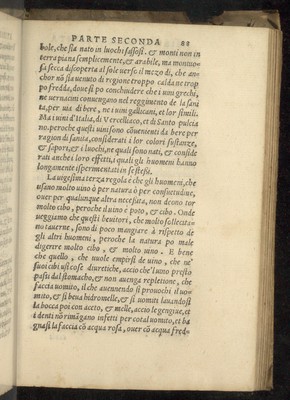 PARTE SECONDA 88
bole, che sia nato in luochi sassosi, & monti non in
terra piana semplicemente, & arabile, ma montuo
sa secca discoperta al sole verso il mezo dì, che an-
chor nõ sia venuto di regione troppo calda ne trop
po fredda, dove si po conchiudere che i vini grechi,
ne vernacini convengano nel reggimento de la sani
tà, per via di bere, ne i vini gallicani, et lor simili.
Ma i vini d'Italia, di Vercelliaco, et di Santo pulcia
no, peroche questi vini sono cõvenienti da bere per
ragion di sanita, considerati i lor colori sustanze,
& sapori, & i luochi, ne quali sono nati, & conside
rati anchei loro effetti, quali gli huomini hanno
longamente esperimentati in se stessi.
La vigesima terza regola è che gli huomini, che
usano molto vino ò per natura ò per consuetudine,
over per qualunque altra necessità, non deono tor
molto cibo, peroche il vino è poto, & cibo. Onde
veggiamo che questi bevitori, che molto sollecita-
no taverne, sono di poco mangiare à rispetto de
gli altri huomeni, peroche la natura po male
digerire molto cibo, & molto vino. E bene
che quello, che vuole empirsi de vino, che ne'
suoi cibi usi cose diuretiche, accio che'l vino presto
passi dal stomacho, & non avenga repletione, che
faccia vomito, il che avennendo si provochi il vo-
mito, & si beva hidromelle, & si vomiti lavandosi
la bocca poi con aceto, & melle, accio le gengive, et
i denti nõ rimãgano infetti per cotal vomito, et ba
gnasi la faccia cõ acqua rosa, over cõ acqua fred-